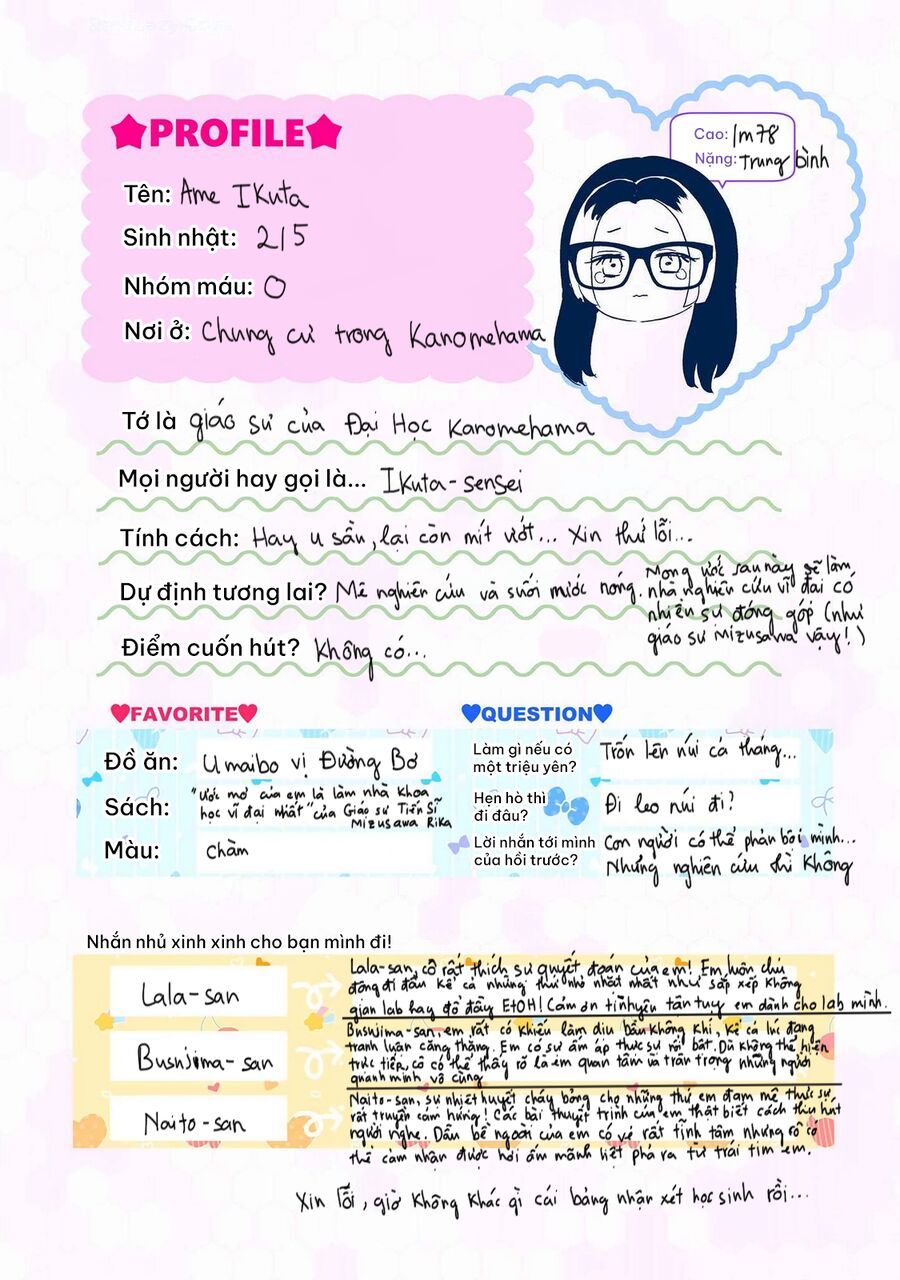 ★PROFILE★
Cao: 1m78
Nặng: trung bình
Tên: Ame Ikuta
Sinh nhật: 2/5
Nhóm máu: O
Nơi ở: Chung cư trong Kanomehama
Tớ là giáo sư của Đại Học Kanomehama
Mọi người hay gọi là... Ikuta-sensei
Tính cách: Hay u sầu, lại còn mít ướt... Xin thứ lỗi...
Dự định tương lai? Mê nghiên cứu và suối nước nóng. Mong ước sau này sẽ làm
nhà nghiên cứu vĩ đại có
nhiều sự đóng góp (như
giáo sư Mizusawa vậy!)
Điểm cuốn hút? Không có...
♥FAVORITE♥
Đồ ăn: Umaibo vị Đường Bơ
Sách: "Ước mơ của em là làm nhà khoa
học vĩ đại nhất" của Giáo sư Tiến Sĩ
Mizusawa Rika
Màu: chàm
♥QUESTION♥
Làm gì nếu có
một triệu yên?
Trốn lên núi cả tháng...
Hẹn hò thì
đi đâu?
Đi leo núi đi?
Lời nhắn tới mình
của hồi trước?
Con người có thể phản bội mình...
Nhưng nghiên cứu thì không
Nhắn nhủ xinh xinh cho bạn mình đi!
Lala-san
Lala-san, cô rất thích sự quyết đoán của em! Em luôn chủ
động đi đầu kể cả những thứ nhỏ nhặt nhất như sắp xếp không
gian lab hay đổ đầy EtOH! Cảm ơn tình yêu tận tụy em dành cho lab mình.
Bushjima-san
Bushjima-san, em rất có khiếu làm dịu bầu không khí, kể cả lúc đang
tranh luận căng thẳng. Em có sự ấm áp thực sự nổi bật. Dù không thể hiện
trực tiếp, cô có thể thấy rõ là em quan tâm và trân trọng những người
quanh mình vô cùng
Naito-san
Naito-san, sự nhiệt huyết cháy bỏng cho những thứ em đam mê thực sự
rất truyền cảm hứng! Các bài thuyết trình của em thật biết cách thu hút
người nghe. Dẫu bề ngoài của em có vẻ rất tịnh tâm nhưng cô có
thể cảm nhận được hơi ấm mãnh liệt phả ra từ trái tim em.
Xin lỗi, giờ không khác gì cái bảng nhận xét học sinh rồi...